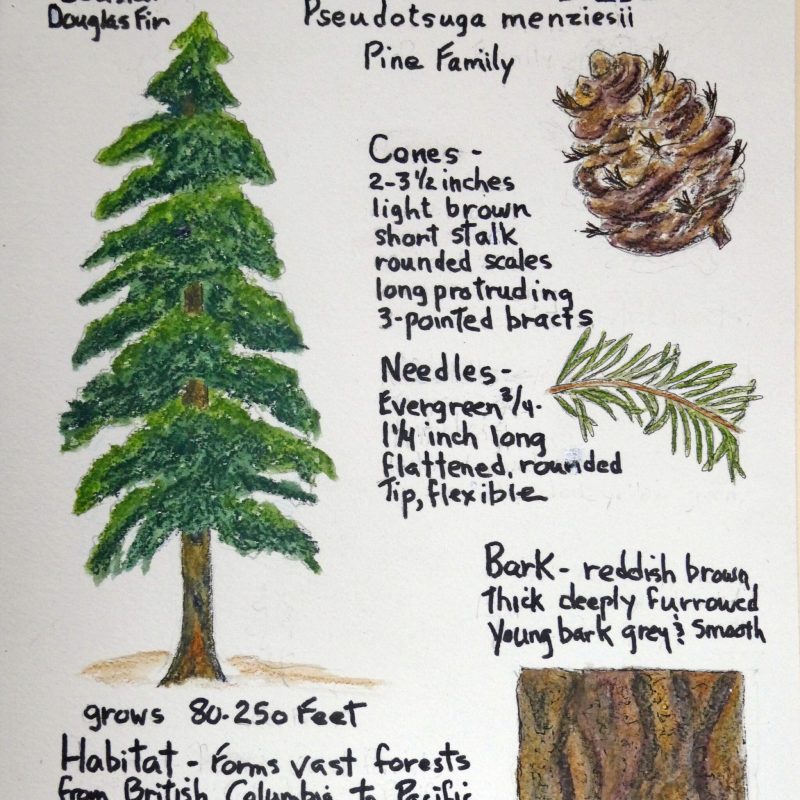 Douglas Fir
Pseudotsuga menziesii
Pine Family
Cones -
2-3 1/2 inches
light brown
short stalk
rounded scales
long protruding
3-pointed bracts
Needles -
Evergreen 3/4-
1 1/4 inch long
flattened, rounded
Tip, flexible
Bark - reddish brown,
Thick deeply furrowed
Young bark grey & Smooth
grows 80-250 Feet
Habitat - Forms vast forests
from British Columbia to Pacific